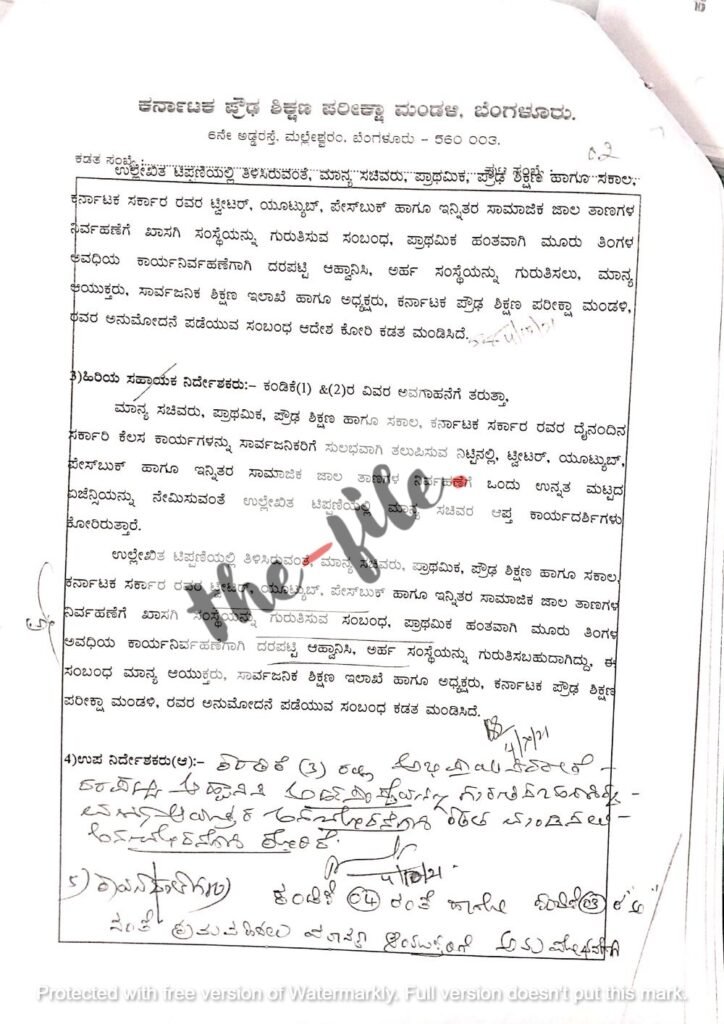 ಕರ್ನಾಟಕ ಪ್ರೌಢ ಶಿಕ್ಷಣ ಪರೀಕ್ಷಾ ಮಂಡಳಿ, ಬೆಂಗಳೂರು.
6ನೇ ಅಡ್ಡರಸ್ತೆ, ಮಲ್ಲೇಶ್ವರಂ, ಬೆಂಗಳೂರು - 560 003.
ಕಡತ ಸಂಖ್ಯೆ: ಪುಟ ಸಂಖ್ಯೆ
ಉಲ್ಲೇಖಿತ ಟಿಪ್ಪಣಿಯಲ್ಲಿ ತಿಳಿಸಿರುವಂತೆ, ಮಾನ್ಯ ಸಚಿವರು, ಪ್ರಾಥಮಿಕ, ಪ್ರೌಢ ಶಿಕ್ಷಣ ಹಾಗೂ ಸಕಾಲ,
ಕರ್ನಾಟಕ ಸರ್ಕಾರ ರವರ ಟ್ವೀಟರ್, ಯೂಟ್ಯುಬ್, ಫೇಸ್‌ಬುಕ್ ಹಾಗೂ ಇನ್ನಿತರ ಸಾಮಾಜಿಕ ಜಾಲ ತಾಣಗಳ
ನಿರ್ವಹಣೆಗೆ ಖಾಸಗಿ ಸಂಸ್ಥೆಯನ್ನು ಗುರುತಿಸುವ ಸಂಬಂಧ, ಪ್ರಾಥಮಿಕ ಹಂತವಾಗಿ ಮೂರು ತಿಂಗಳ
ಅವಧಿಯ ಕಾರ್ಯನಿರ್ವಹಣೆಗಾಗಿ ದರಪಟ್ಟಿ ಆಹ್ವಾನಿಸಿ, ಅರ್ಹ ಸಂಸ್ಥೆಯನ್ನು ಗುರುತಿಸಲು, ಮಾನ್ಯ
ಆಯುಕ್ತರು, ಸಾರ್ವಜನಿಕ ಶಿಕ್ಷಣ ಇಲಾಖೆ ಹಾಗೂ ಅಧ್ಯಕ್ಷರು, ಕರ್ನಾಟಕ ಪ್ರೌಢ ಶಿಕ್ಷಣ ಪರೀಕ್ಷಾ ಮಂಡಳಿ,
ರವರ ಅನುಮೋದನೆ ಪಡೆಯುವ ಸಂಬಂಧ ಆದೇಶ ಕೋರಿ ಕಡತ ಮಂಡಿಸಿದೆ.
3)ಹಿರಿಯ ಸಹಾಯಕ ನಿರ್ದೇಶಕರು:- ಕಂಡಿಕೆ(1) &(2)ರ ವಿವರ ಅವಗಾಹನೆಗೆ ತರುತ್ತಾ,
ಮಾನ್ಯ ಸಚಿವರು, ಪ್ರಾಥಮಿಕ, ಪ್ರೌಢ ಶಿಕ್ಷಣ ಹಾಗೂ ಸಕಾಲ, ಕರ್ನಾಟಕ ಸರ್ಕಾರ ರವರ ದೈನಂದಿನ
ಸರ್ಕಾರಿ ಕೆಲಸ ಕಾರ್ಯಗಳನ್ನು ಸಾರ್ವಜನಿಕರಿಗೆ ಸುಲಭವಾಗಿ ತಲುಪಿಸುವ ನಿಟ್ಟಿನಲ್ಲಿ, ಟ್ವೀಟರ್, ಯೂಟ್ಯುಬ್,
ಫೇಸ್‌ಬುಕ್ ಹಾಗೂ ಇನ್ನಿತರ ಸಾಮಾಜಿಕ ಜಾಲ ತಾಣಗಳ ನಿರ್ವಹಣೆಗೆ ಒಂದು ಉನ್ನತ ಮಟ್ಟದ
ಏಜೆನ್ಸಿಯನ್ನು ನೇಮಿಸುವಂತೆ ಉಲ್ಲೇಖಿತ ಟಿಪ್ಪಣಿಯಲ್ಲಿ ಮಾನ್ಯ ಸಚಿವರ ಆಪ್ತ ಕಾರ್ಯದರ್ಶಿಗಳು
ಕೋರಿರುತ್ತಾರೆ.
ಉಲ್ಲೇಖಿತ ಟಿಪ್ಪಣಿಯಲ್ಲಿ ತಿಳಿಸಿರುವಂತೆ, ಮಾನ್ಯ ಸಚಿವರು, ಪ್ರಾಥಮಿಕ, ಪ್ರೌಢ ಶಿಕ್ಷಣ ಹಾಗೂ ಸಕಾಲ,
ಕರ್ನಾಟಕ ಸರ್ಕಾರ ರವರ ಟ್ವೀಟರ್, ಯೂಟ್ಯುಬ್, ಫೇಸ್‌ಬುಕ್ ಹಾಗೂ ಇನ್ನಿತರ ಸಾಮಾಜಿಕ ಜಾಲ ತಾಣಗಳ
ನಿರ್ವಹಣೆಗೆ ಖಾಸಗಿ ಸಂಸ್ಥೆಯನ್ನು ಗುರುತಿಸುವ ಸಂಬಂಧ, ಪ್ರಾಥಮಿಕ ಹಂತವಾಗಿ ಮೂರು ತಿಂಗಳ
ಅವಧಿಯ ಕಾರ್ಯನಿರ್ವಹಣೆಗಾಗಿ ದರಪಟ್ಟಿ ಆಹ್ವಾನಿಸಿ, ಅರ್ಹ ಸಂಸ್ಥೆಯನ್ನು ಗುರುತಿಸಬಹುದಾಗಿದ್ದು, ಈ
ಸಂಬಂಧ ಮಾನ್ಯ ಆಯುಕ್ತರು, ಸಾರ್ವಜನಿಕ ಶಿಕ್ಷಣ ಇಲಾಖೆ ಹಾಗೂ ಅಧ್ಯಕ್ಷರು, ಕರ್ನಾಟಕ ಪ್ರೌಢ ಶಿಕ್ಷಣ
ಪರೀಕ್ಷಾ ಮಂಡಳಿ, ರವರ ಅನುಮೋದನೆ ಪಡೆಯುವ ಸಂಬಂಧ ಕಡತ ಮಂಡಿಸಿದೆ.
the-file
4)ಉಪ ನಿರ್ದೇಶಕರು(ಆ):- ಕಂಡಿಕೆ (3) ರಲ್ಲಿ
4/10/21
5) ಕಂಡಿಕೆ 04 ರಂತೆ ಹಾಗೂ ಕಂಡಿಕೆ 03 ರ
Protected with free version of Watermarkly. Full version doesn't put this mark.